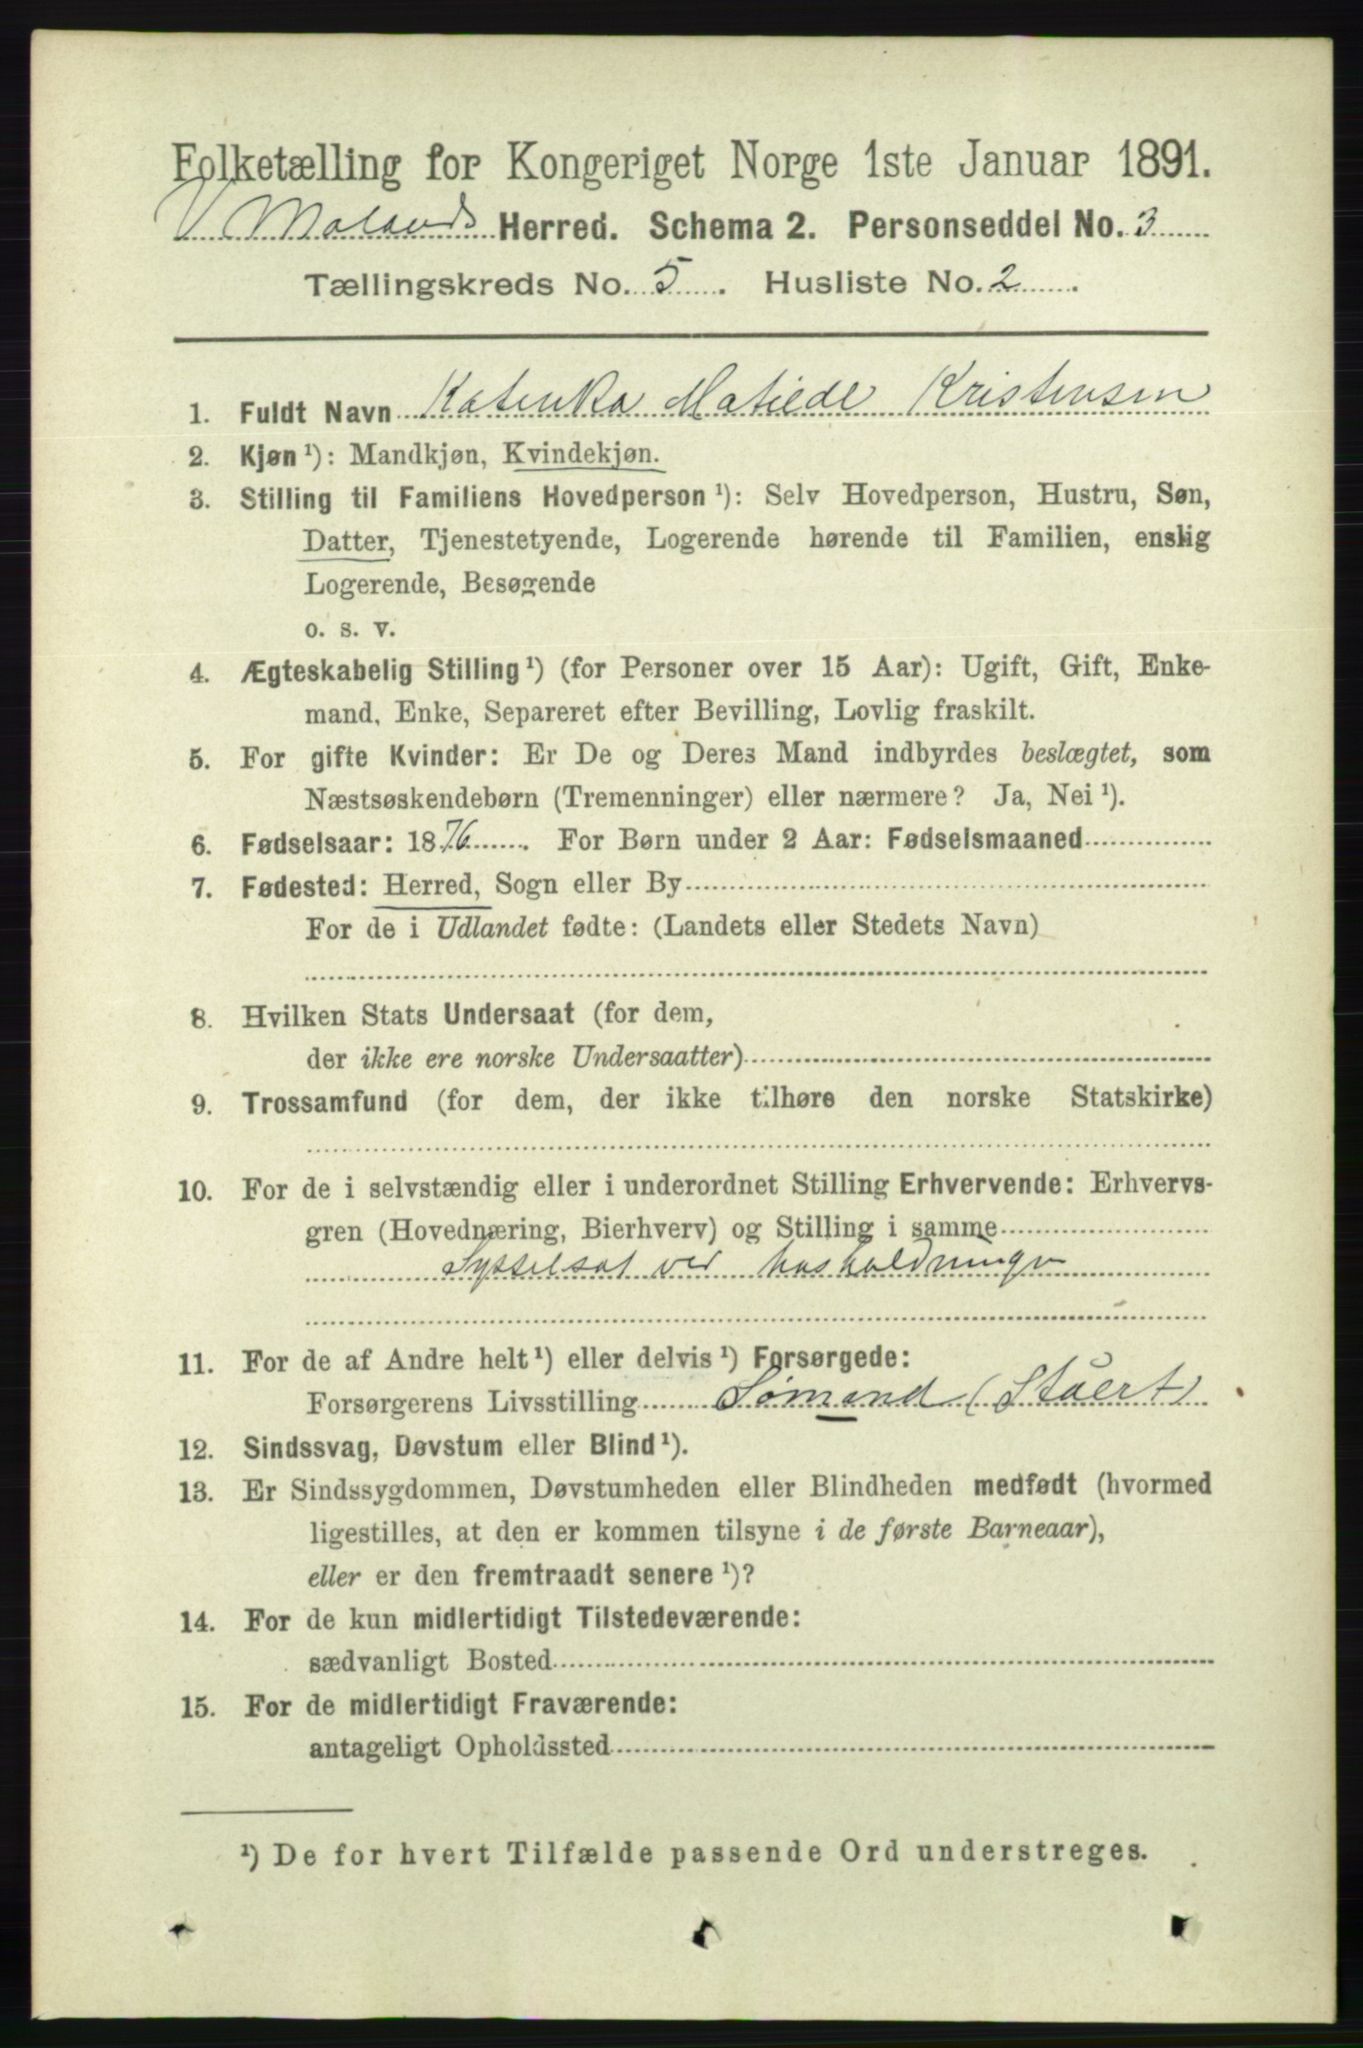 Folketælling for Kongeriget Norge 1ste Januar 1891.
V Molands Herred. Schema 2. Personseddel No. 3
Tællingskreds No. 5. Husliste No. 2.
1. Fuldt Navn Katinka Matilde Kristensen
2. Kjøn ¹): Mandkjøn, Kvindekjøn.
3. Stilling til Familiens Hovedperson ¹): Selv Hovedperson, Hustru, Søn,
Datter, Tjenestetyende, Logerende hørende til Familien, enslig
Logerende, Besøgende
o. s. v.
4. Ægteskabelig Stilling ¹) (for Personer over 15 Aar): Ugift, Gift, Enke-
mand, Enke, Separeret efter Bevilling, Lovlig fraskilt.
5. For gifte Kvinder: Er De og Deres Mand indbyrdes beslægtet, som
Næstsøskendebørn (Tremenninger) eller nærmere? Ja, Nei ¹).
6. Fødselsaar: 1876. For Børn under 2 Aar: Fødselsmaaned
7. Fødested: Herred, Sogn eller By
For de i Udlandet fødte: (Landets eller Stedets Navn)
8. Hvilken Stats Undersaat (for dem,
der ikke ere norske Undersaatter)
9. Trossamfund (for dem, der ikke tilhøre den norske Statskirke)
10. For de i selvstændig eller i underordnet Stilling Erhvervende: Erhvervs-
gren (Hovednæring, Bierhverv) og Stilling i samme
Sysselsat ved husholdninge
11. For de af Andre helt ¹) eller delvis ¹) Forsørgede:
Forsørgerens Livsstilling Sømand (Stuert)
12. Sindssvag, Døvstum eller Blind ¹).
13. Er Sindssygdommen, Døvstumheden eller Blindheden medfødt (hvormed
ligestilles, at den er kommen tilsyne i de første Barneaar),
eller er den fremtraadt senere ¹)?
14. For de kun midlertidigt Tilstedeværende:
sædvanligt Bosted
15. For de midlertidigt Fraværende:
antageligt Opholdssted
¹) De for hvert Tilfælde passende Ord understreges.